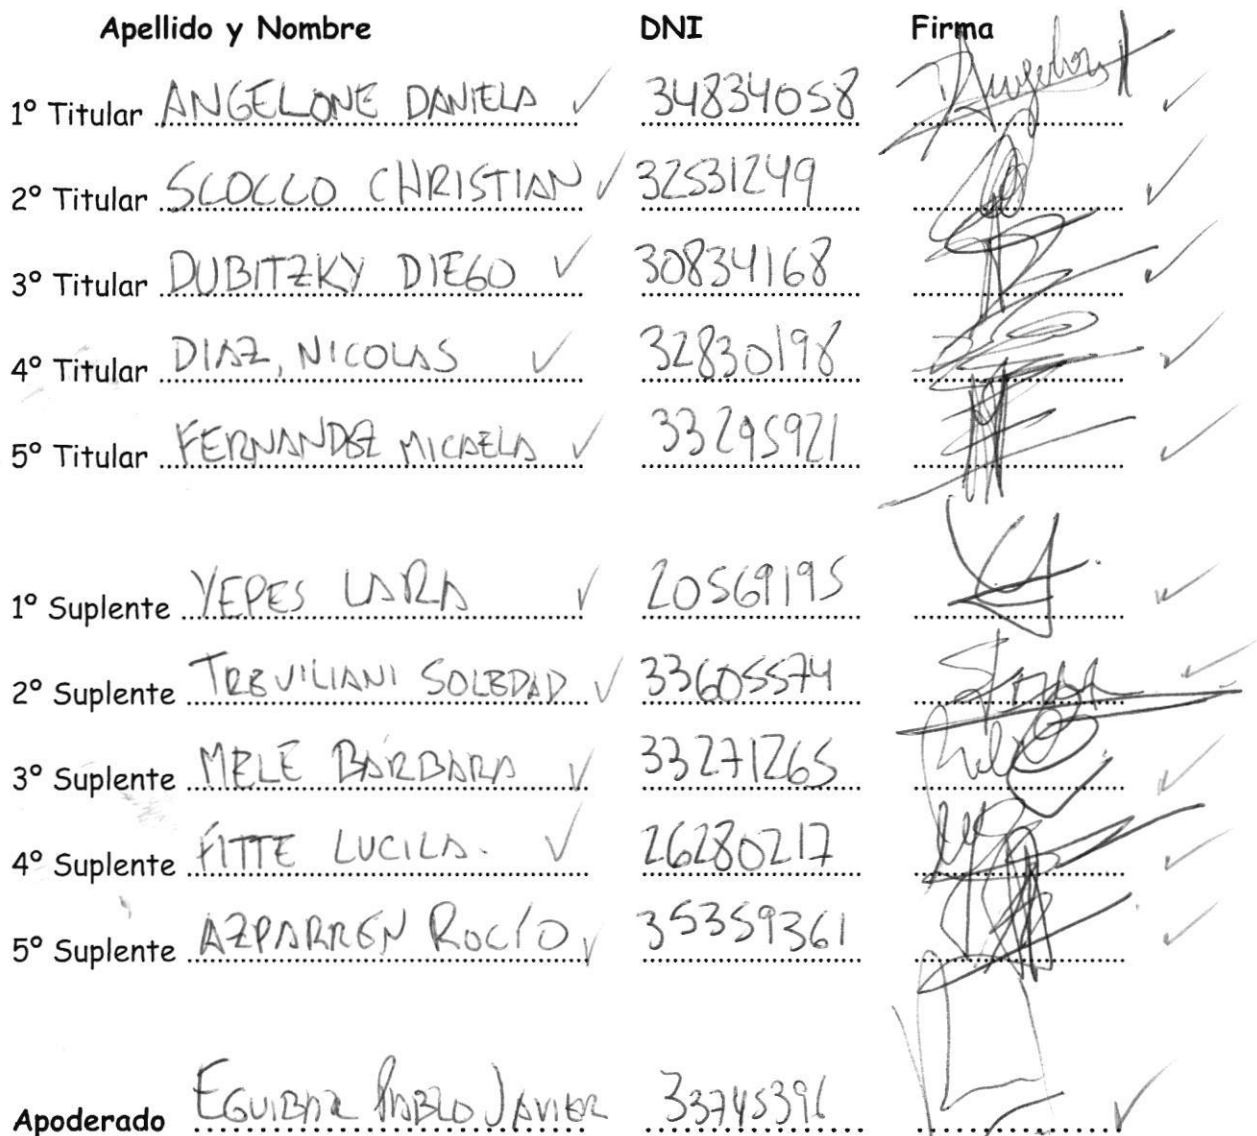 Apellido y Nombre DNI Firma
1º Titular ANGELONE DANIELA 34834058
2º Titular SCOCCO CHRISTIAN 32531249
3º Titular DUBITZKY DIEGO 30834168
4º Titular DIAZ, NICOLAS 32830198
5º Titular FERNANDEZ MICAELA 33295921
1º Suplente YEPES LARA 20569195
2º Suplente TREVILIANI SOLEDAD 33605574
3º Suplente MELE BÁRBARA 33271265
4º Suplente FITTE LUCILA. 26280217
5º Suplente AZPARREN ROCÍO 35359361
Apoderado EGUIBAR PABLO JAVIER 33745396